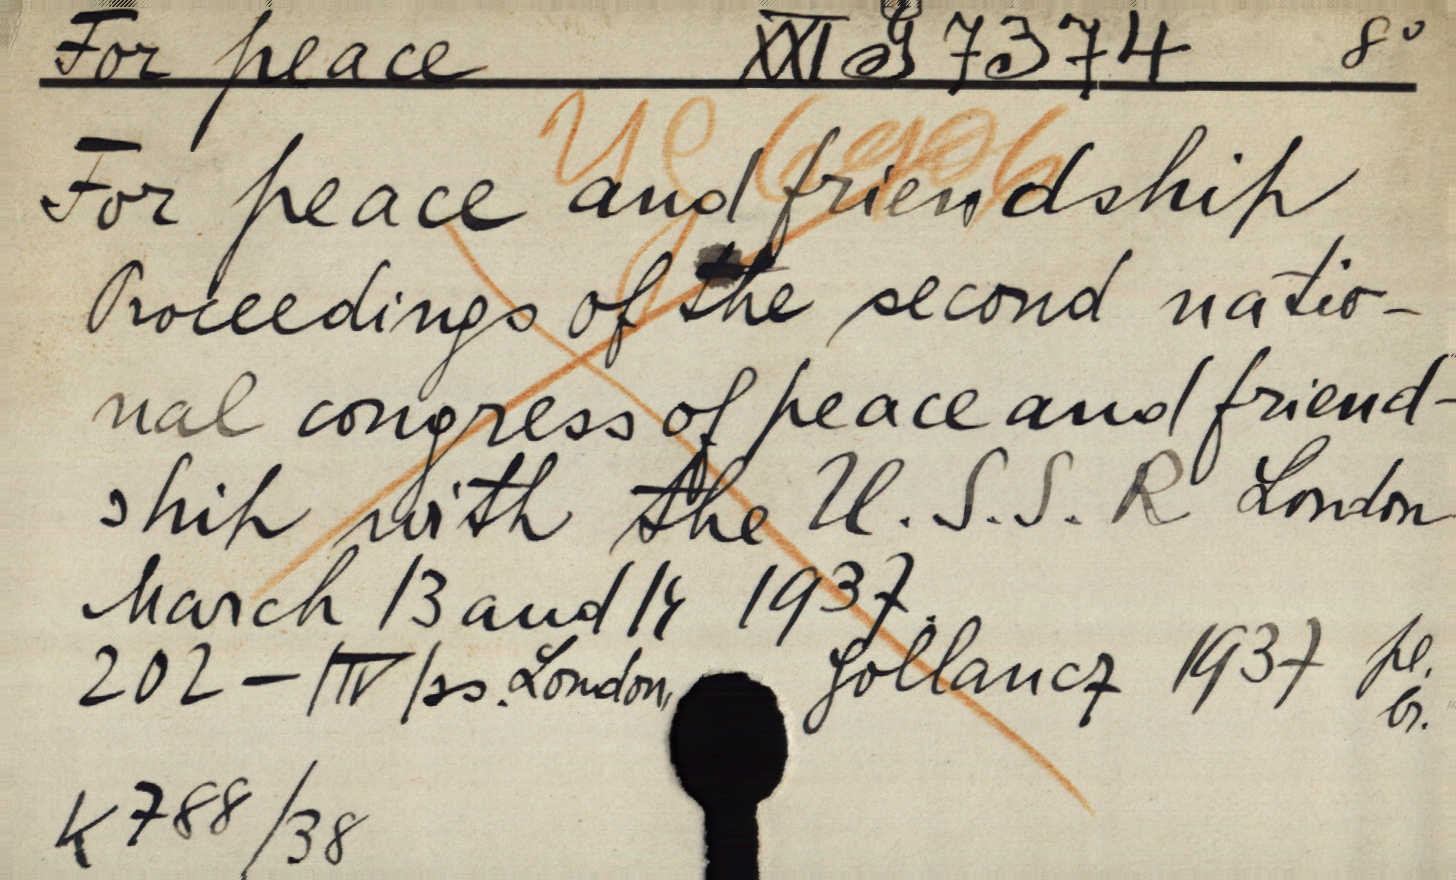 For peace XXI J 7374 8°
For peace and friendship
Proceedings of the second natio-
nal congress of peace and friend-
ship with the U.S.S.R London
March 13 and 14 1937.
202 - /IV/ ss. London, Gollancz 1937 pl.
br.
K 788/38